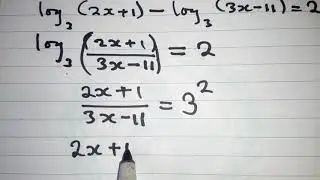 log₃(2x+1) − log₃(3x−11) = 2
log₃((2x+1)/(3x−11)) = 2
(2x+1)/(3x−11) = 3²
2x+1